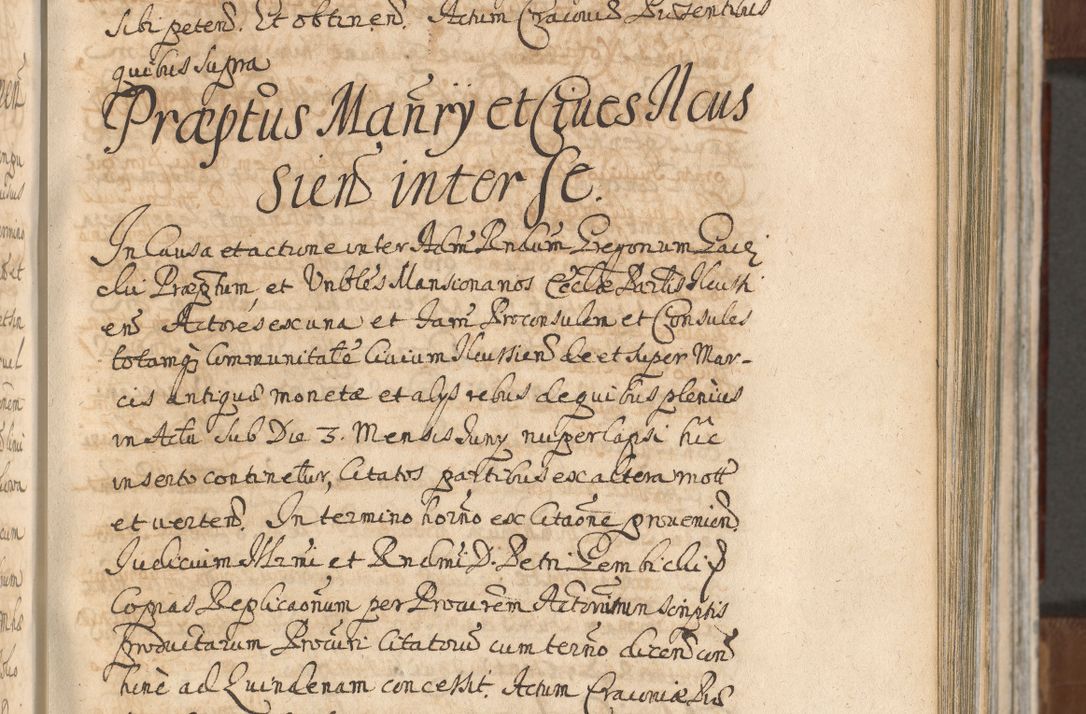 sibi peten̄. Et obtinen̄. Actum Cracoviæ Præsentibus
quibus supra
Præptus Man̄rij et Ciues Ilcus
sien̄ inter se.
In Causa et actione inter Adm̄ Rndum̄ Gregorium
clij Præptum, et Vnbles Mansionarios Eccl̄æ Par̄lis Ilcussi
en̄ Actores ex una et Fam̄ Proconsulem et Consules
totamq₃ Communitatē Ciuium Ilcussien̄ de et super Mar-
cis antiquæ monetæ et alys rebus de quibus plenius
in Actu sub Die 3. Mensis Juny nuper lapsi hîc
inserto continetur, Citatos partibus ex altera mott̄
et uerten̄. In termino horn̄o ex Citaōne prouenien̄.
Iudicium Illrmi et Rndmi D. Petri Gembicki
Copias Replicaōnum per Procurēm Actorum in scriptis
productarum Procuri Citatorū cum tern̄o dicen̄ con̄
hinc ad Quindenam concessit. Actum Cracouiæ Præ